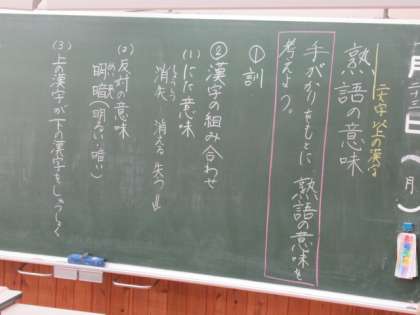 日(月)
二字以上の漢字
熟語の意味
手がかりをもとに 熟語の意味を
考えよう。
① 訓
② 漢字の組み合わせ
(1) にた意味
消失 消える 失う
(2) 反対の意味
明暗(明るい・暗い)
(3) 上の漢字が下の漢字をしゅうしょく